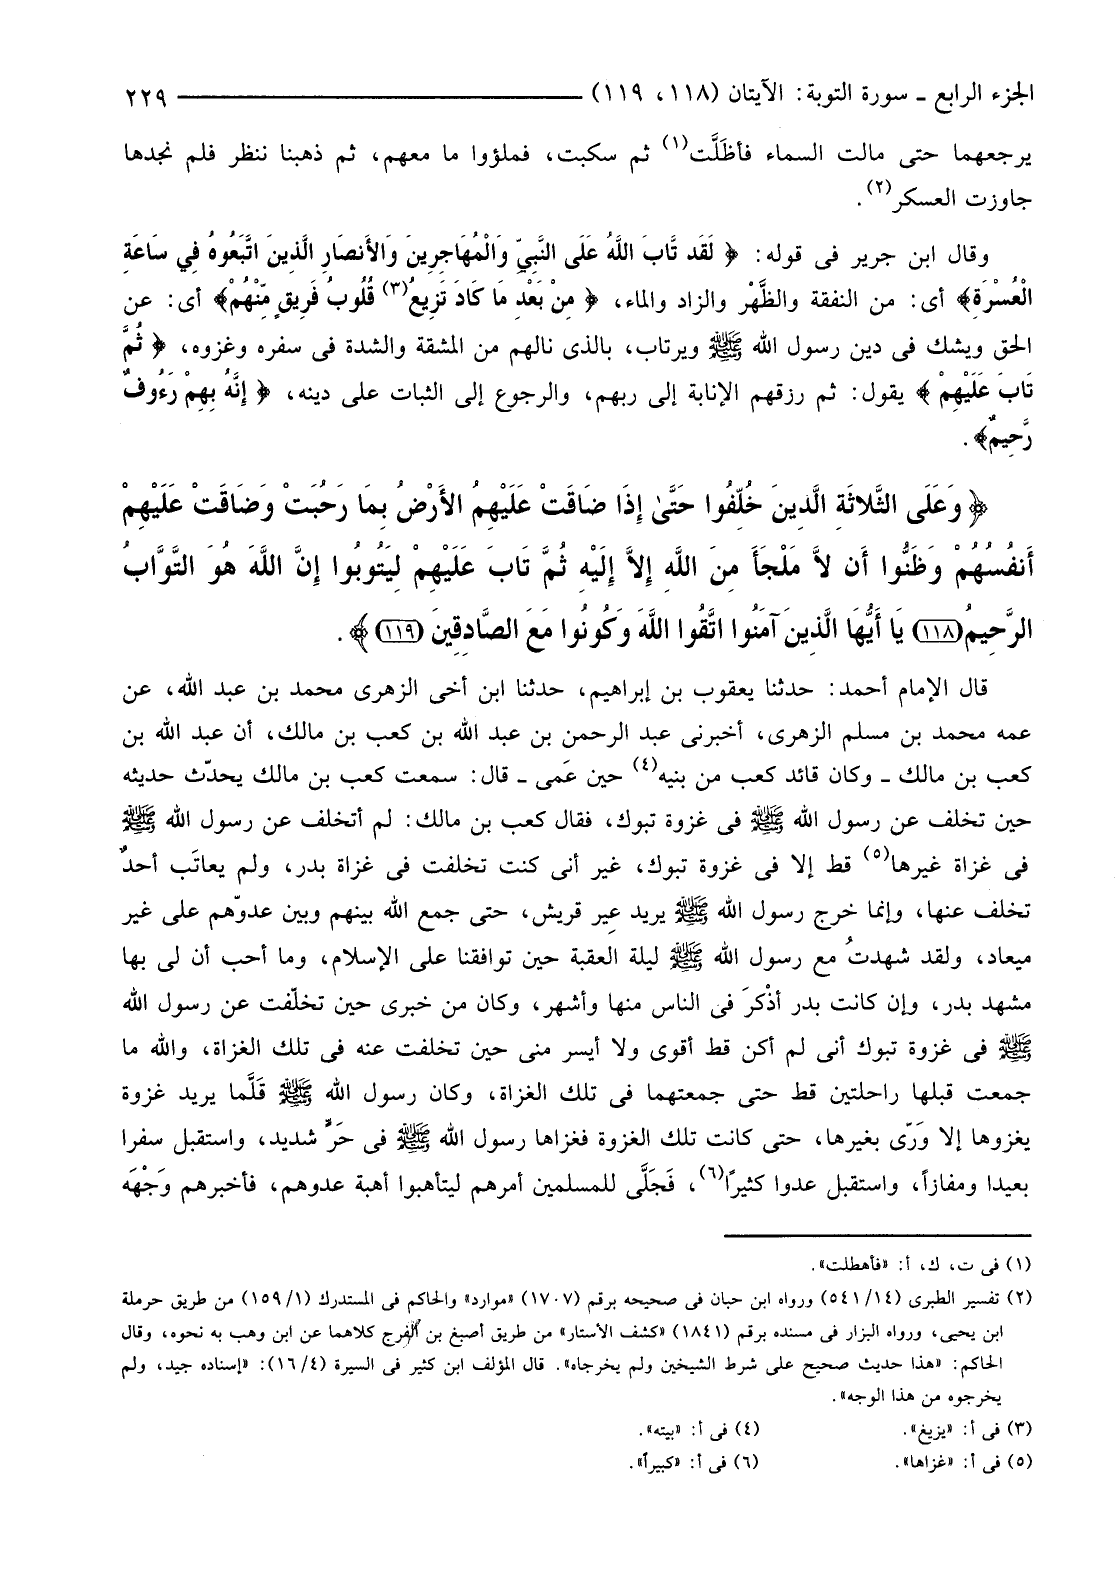 الجزء الرابع ـ سورة التوبة: الآيتان (١١٨، ١١٩) ٢٢٩
يرجعهما حتى مالت السماء فأظَلَّت(١) ثم سكبت، فملؤوا ما معهم، ثم ذهبنا ننظر فلم نجدها
جاوزت العسكر(٢).
وقال ابن جرير فى قوله: ﴿ لَقَد تَّابَ اللَّهُ عَلَى النَّبِيِّ وَالْمُهَاجِرِينَ وَالأَنصَارِ الَّذِينَ اتَّبَعُوهُ فِي سَاعَةِ
الْعُسْرَةِ﴾ أى: من النفقة والظَّهْر والزاد والماء، ﴿ مِنْ بَعْدِ مَا كَادَ تَزِيغُ(٣) قُلُوبُ فَرِيقٍ مِّنْهُمْ﴾ أى: عن
الحق ويشك فى دين رسول الله ﷺ ويرتاب، بالذى نالهم من المشقة والشدة فى سفره وغزوه، ﴿ ثُمَّ
تَابَ عَلَيْهِمْ ﴾ يقول: ثم رزقهم الإنابة إلى ربهم، والرجوع إلى الثبات على دينه، ﴿ إِنَّهُ بِهِمْ رَءُوفٌ
رَّحِيمٌ﴾.
﴿ وَعَلَى الثَّلاثَةِ الَّذِينَ خُلِّفُوا حَتَّىٰ إِذَا ضَاقَتْ عَلَيْهِمُ الأَرْضُ بِمَا رَحُبَتْ وَضَاقَتْ عَلَيْهِمْ
أَنفُسُهُمْ وَظَنُّوا أَن لاَّ مَلْجَأَ مِنَ اللَّهِ إِلاَّ إِلَيْهِ ثُمَّ تَابَ عَلَيْهِمْ لِيَتُوبُوا إِنَّ اللَّهَ هُوَ التَّوَّابُ
الرَّحِيمُ (١١٨) يَا أَيُّهَا الَّذِينَ آمَنُوا اتَّقُوا اللَّهَ وَكُونُوا مَعَ الصَّادِقِينَ (١١٩) ﴾.
قال الإمام أحمد: حدثنا يعقوب بن إبراهيم، حدثنا ابن أخى الزهرى محمد بن عبد الله، عن
عمه محمد بن مسلم الزهرى، أخبرنى عبد الرحمن بن عبد الله بن كعب بن مالك، أن عبد الله بن
كعب بن مالك ـ وكان قائد كعب من بنيه(٤) حين عَمى ـ قال: سمعت كعب بن مالك يحدّث حديثه
حين تخلف عن رسول الله ﷺ فى غزوة تبوك، فقال كعب بن مالك: لم أتخلف عن رسول الله ﷺ
فى غزاة غيرها(٥) قط إلا فى غزوة تبوك، غير أنى كنت تخلفت فى غزاة بدر، ولم يعاتَب أحدٌ
تخلف عنها، وإنما خرج رسول الله ﷺ يريد عِير قريش، حتى جمع الله بينهم وبين عدوّهم على غير
ميعاد، ولقد شهدتُ مع رسول الله ﷺ ليلة العقبة حين توافقنا على الإسلام، وما أحب أن لى بها
مشهد بدر، وإن كانت بدر أذْكرَ فى الناس منها وأشهر، وكان من خبرى حين تخلّفت عن رسول الله
ﷺ فى غزوة تبوك أنى لم أكن قط أقوى ولا أيسر منى حين تخلفت عنه فى تلك الغزاة، والله ما
جمعت قبلها راحلتين قط حتى جمعتهما فى تلك الغزاة، وكان رسول الله ﷺ قَلَّما يريد غزوة
يغزوها إلا وَرّى بغيرها، حتى كانت تلك الغزوة فغزاها رسول الله ﷺ فى حَرٍّ شديد، واستقبل سفرا
بعيدا ومفازاً، واستقبل عدوا كثيرًا(٦)، فَجَلَّى للمسلمين أمرهم ليتأهبوا أهبة عدوهم، فأخبرهم وَجْهَه
(١) فى ت، ك، أ: «فأهطلت».
(٢) تفسير الطبرى (٥٤١/١٤) ورواه ابن حبان فى صحيحه برقم (١٧٠٧) «موارد» والحاكم فى المستدرك (١٥٩/١) من طريق حرملة
ابن يحيى، ورواه البزار فى مسنده برقم (١٨٤١) «كشف الأستار» من طريق أصبغ بن الفرج كلاهما عن ابن وهب به نحوه، وقال
الحاكم: «هذا حديث صحيح على شرط الشيخين ولم يخرجاه». قال المؤلف ابن كثير فى السيرة (١٦/٤): «إسناده جيد، ولم
يخرجوه من هذا الوجه».
(٣) فى أ: «يزيغ». (٤) فى أ: «بيته».
(٥) فى أ: «غزاها». (٦) فى أ: «كبيراً».